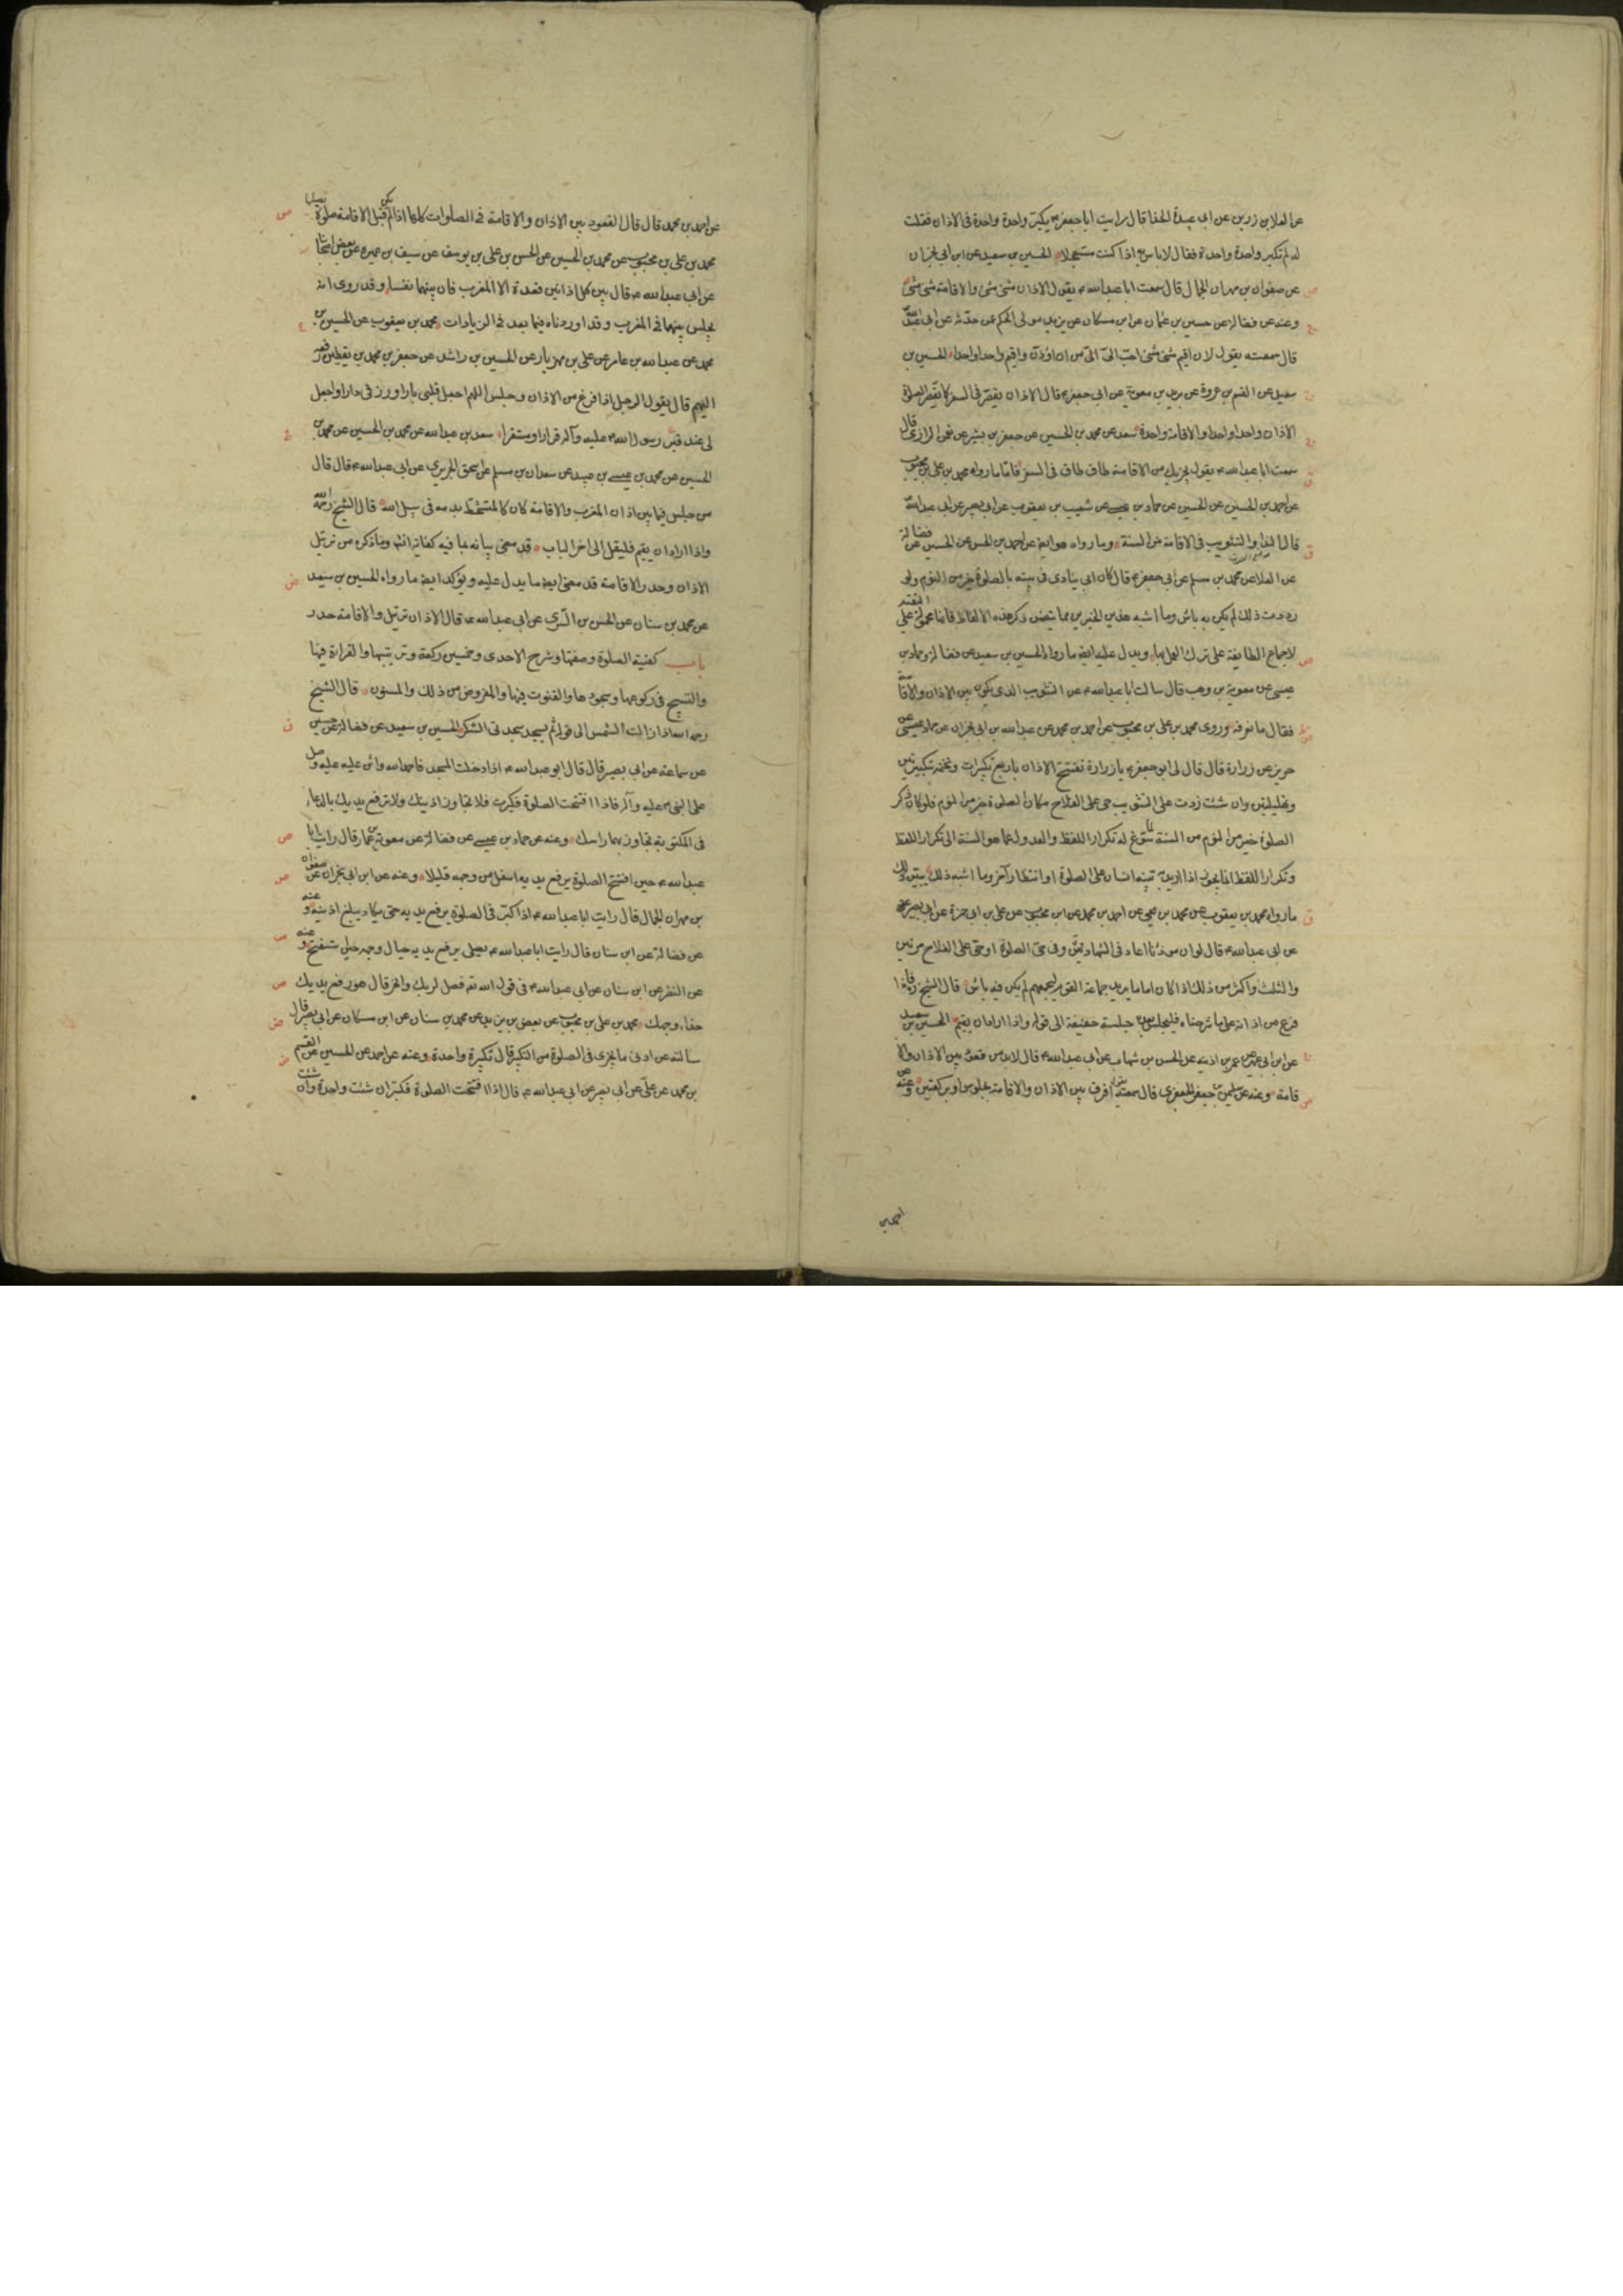 عن العلا بن رزين عن ابى عبيدة الحذا قال رايت ابا جعفر ع يكبر واحدة واحدة فى الاذان فقلت
له لم تكبر واحدة واحدة فقال لا باس به اذا كنت مستعجلا الحسين بن سعيد عن ابن ابى نجران
عن صفوان بن مهران الجمال قال سمعت ابا عبد الله ع يقول الاذان مثنى مثنى والاقامة مثنى مثنى
وعنه عن فضالة عن حسين بن عثمان عن ابن مسكان عن يزيد مولى الحكم عمن حدثه عن ابى عبد الله
قال سمعته يقول لان اقيم مثنى مثنى احب الى من ان اؤذن واقيم واحدا واحدا الحسين بن
سعيد عن القسم بن عروة عن بريد بن معوية عن ابى جعفر ع قال الاذان يقصر فى السفر كما تقصر الصلوة
الاذان واحدا واحدا والاقامة واحدة سعد عن محمد بن الحسين عن جعفر بن بشير عن نعمن الرازى قال
سمعت ابا عبد الله ع يقول يجزيك من الاقامة طاق طاق فى السفر فاما ما رواه محمد بن على بن محبوب
عن احمد بن الحسن عن الحسين عن حماد بن عيسى عن شعيب بن يعقوب عن ابى بصير عن ابى عبد الله
قال النداء والتثويب فى الاقامة من السنة وما رواه هو ايضا عن احمد بن الحسن عن الحسين عن فضالة
عن العلا عن محمد بن مسلم عن ابى جعفر ع قال كان ابى ينادى فى بيته بالصلوة خير من النوم ولو
رددت ذلك لم يكن به باس وما اشبه هذين الخبرين مما يتضمن ذكر هذه الالفاظ فانها محمولة على التقية
لاجماع الطايفة على ترك العمل بها ويدل عليه ايضا ما رواه الحسين بن سعيد عن فضالة وحماد بن
عيسى عن معوية بن وهب قال سالت ابا عبد الله ع عن التثويب الذى يكون بين الاذان والاقامة
فقال ما نعرفه وروى محمد بن على بن محبوب عن احمد بن محمد عن عبد الله بن ابى نجران عن حماد بن عيسى عن
حريز عن زرارة قال قال لى ابو جعفر ع يا زرارة تفتتح الاذان باربع تكبيرات وتختمه بتكبيرتين
وتهليلتين وان شئت زدت على التثويب حى على الفلاح مكان الصلوة خير من النوم فلو كان ذكر
الصلوة خير من النوم من السنة لما سوغ له تكرار اللفظ والعدول عما هو السنة الى تكرار اللفظ
وتكرار اللفظ انما يجوز اذا اريد به تنبيه انسان على الصلوة او انتظار آخر وما اشبه ذلك يبين ذلك
ما رواه محمد بن يعقوب عن محمد بن يحيى عن احمد بن محمد عن ابن محبوب عن على بن ابى حمزة عن ابى بصير
عن ابى عبد الله ع قال لو ان مؤذنا اعاد فى الشهادتين وفى حى على الصلوة او حى على الفلاح مرتين
والثلث واكثر من ذلك اذا كان اماما يريد جماعة القوم ليجمعهم لم يكن فيه باس قال الشيخ ره فاذا
فرغ من اذانه على ما شرحناه فليجلس بعده جلسة خفيفة الى قوله واذا اراد ان يقيم الحسين بن سعيد
عن ابن ابى عمير عن عمر بن اذينة عن الحسن بن شهاب عن ابى عبد الله ع قال لا بد من قعود بين الاذان والا
قامة وعنه عن سليمن بن جعفر الجعفرى قال سمعته يقول افرق بين الاذان والاقامة بجلوس او بركعتين وعنه عن
احمد بن
عن احمد بن محمد قال قال القعود بين الاذان والاقامة فى الصلوات كلها اذا لم يكن قبل الاقامة صلوة يصليها
محمد بن على بن محبوب عن محمد بن الحسين عن الحسن بن على بن يوسف عن سيف بن عميرة عن بعض اصحابنا
عن ابى عبد الله ع قال بين كل اذانين قعدة الا المغرب فان بينهما نفسا وقد روى انه
يجلس بينهما فى المغرب وقد اوردناه فيما بعد فى الزيادات محمد بن يعقوب عن الحسين بن
محمد عن عبد الله بن عامر عن على بن مهزيار عن الحسين بن راشد عن جعفر بن محمد بن يقطين رفعه
اليهم قال يقول الرجل اذا فرغ من الاذان وجلس اللهم اجعل قلبى بارا ورزقى دارا واجعل
لى عند قبر رسول الله ص عليه وآله قرارا ومستقرا سعد بن عبد الله عن محمد بن الحسين عن محمد بن
الحسين عن محمد بن عيسى بن عبيد عن سعدان بن مسلم عن اسحق الجريرى عن ابى عبد الله ع قال قال
من جلس فيما بين اذان المغرب والاقامة كان كالمتشحط بدمه فى سبيل الله قال الشيخ رحمه الله
واذا اراد ان يقيم فليقل الى اخر الباب قد مضى بيانه بما فيه كفاية انشه وما ذكره من ترتيل
الاذان وحدر الاقامة قد مضى ايضا ما يدل عليه ويؤكد ايضا ما رواه الحسين بن سعيد
عن محمد بن سنان عن الحسن بن السرى عن ابى عبد الله ع قال الاذان ترتيل والاقامة حدر
باب كيفية الصلوة وصفتها وشرح الاحدى وخمسين ركعة وترتيبها والقراءة فيها
والتسبيح فى ركوعها وسجودها والقنوت فيها والمفروض من ذلك والمسنون قال الشيخ
رحمه الله اذا زالت الشمس الى قوله ثم يسجد سجدتى الشكر الحسين بن سعيد عن فضالة عن حسين
عن سماعة عن ابى بصير قال قال ابو عبد الله ع اذا دخلت المسجد فاحمد الله واثن عليه وصل
على النبى ص عليه وآله فاذا افتتحت الصلوة فكبرت فلا تجاوز اذنيك ولا ترفع يديك بالدعاء
فى المكتوبة تجاوز بهما راسك وعنه عن حماد بن عيسى عن فضالة عن معوية بن عمار قال رايت ابا
عبد الله ع حين افتتح الصلوة يرفع يديه اسفل من وجهه قليلا وعنه عن ابن ابى نجران عن صفوان
بن مهران الجمال قال رايت ابا عبد الله ع اذا كبر فى الصلوة يرفع يديه حتى يكاد يبلغ اذنيه وعنه
عن فضالة عن ابن سنان قال رايت ابا عبد الله ع يصلى يرفع يديه حيال وجهه حين استفتح وعنه
عن النضر عن ابن سنان عن ابى عبد الله ع فى قول الله تع فصل لربك وانحر قال هو رفع يديك
حذاء وجهك محمد بن على بن محبوب عن يعقوب بن يزيد عن محمد بن سنان عن ابن مسكان عن ابى بصير قال
سالته عن ادنى ما يجزى فى الصلوة من التكبير قال تكبيرة واحدة وعنه عن احمد عن الحسين عن القسم
بن محمد عن على عن ابى بصير عن ابى عبد الله ع قال اذا افتتحت الصلوة فكبر ان شئت واحدة وان شئت